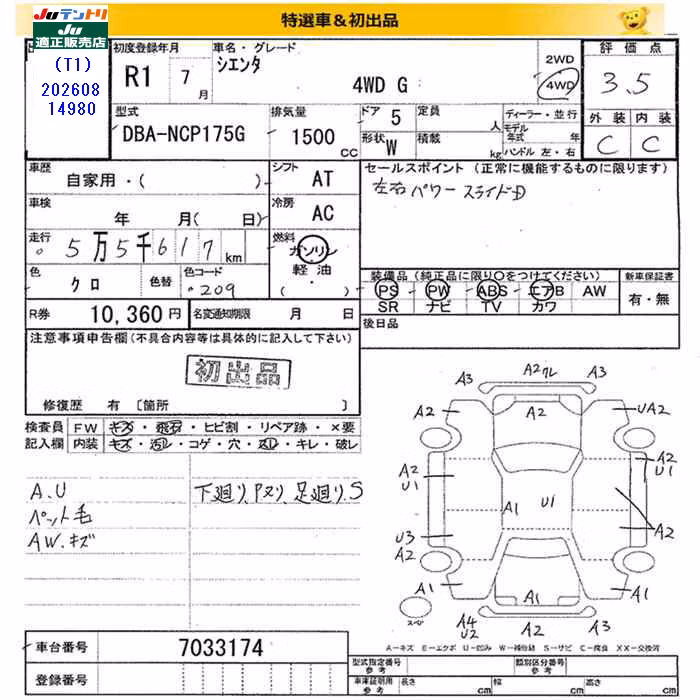 JUテントリ
JU
適正販売店
(T1)
202608
14980
特選車&初出品
初度登録年月
R1 7月
車名・グレード
シエンタ
4WD G
2WD
4WD
評価点
3.5
外装 内装
C C
型式
DBA-NCP175G
排気量
1500 cc
ドア 5
定員 人
形状 W
積載 kg
ディーラー・並行
モデル年式 年
ハンドル 左・右
車歴
自家用・( )
シフト AT
車検
年 月( 日)
冷房 AC
走行
5万5千617km
燃料 ガソリン
軽油
( ・ )
色 クロ
色替
色コード 209
セールスポイント(正常に機能するものに限ります)
左右パワースライドD
装備品(純正品に限り○をつけてください)
PS PW ABS エアB AW
SR ナビ TV カワ
新車保証書
有・無
R券 10,360円
名変通知期限 月 日
後日品
注意事項申告欄(不具合内容等は具体的に記入して下さい)
初出品
修復歴 有 〔箇所 〕
検査員記入欄
FW キズ・飛石・ヒビ割・リペア跡・×要
内装 キズ・汚レ・コゲ・穴・スレ・キレ・破レ
A.U
ペット毛
AW.キズ
下廻り、Pヌリ 足廻り.S
A3 A2ワレ A3
A2 A2 UA2
A2 U1 A2 U1
A1 U1
U3 A2 A2
A1 A1 A1
A4 U2 A2 A3
スペア
A-キズ E-エクボ U-凹み W-補修跡 S-サビ C-腐食 XX-交換済
車台番号 7033174
登録番号
型式指定番号 参考
類別区分番号 参考
車庫証明用 参考 長さ cm 幅 cm 高さ cm